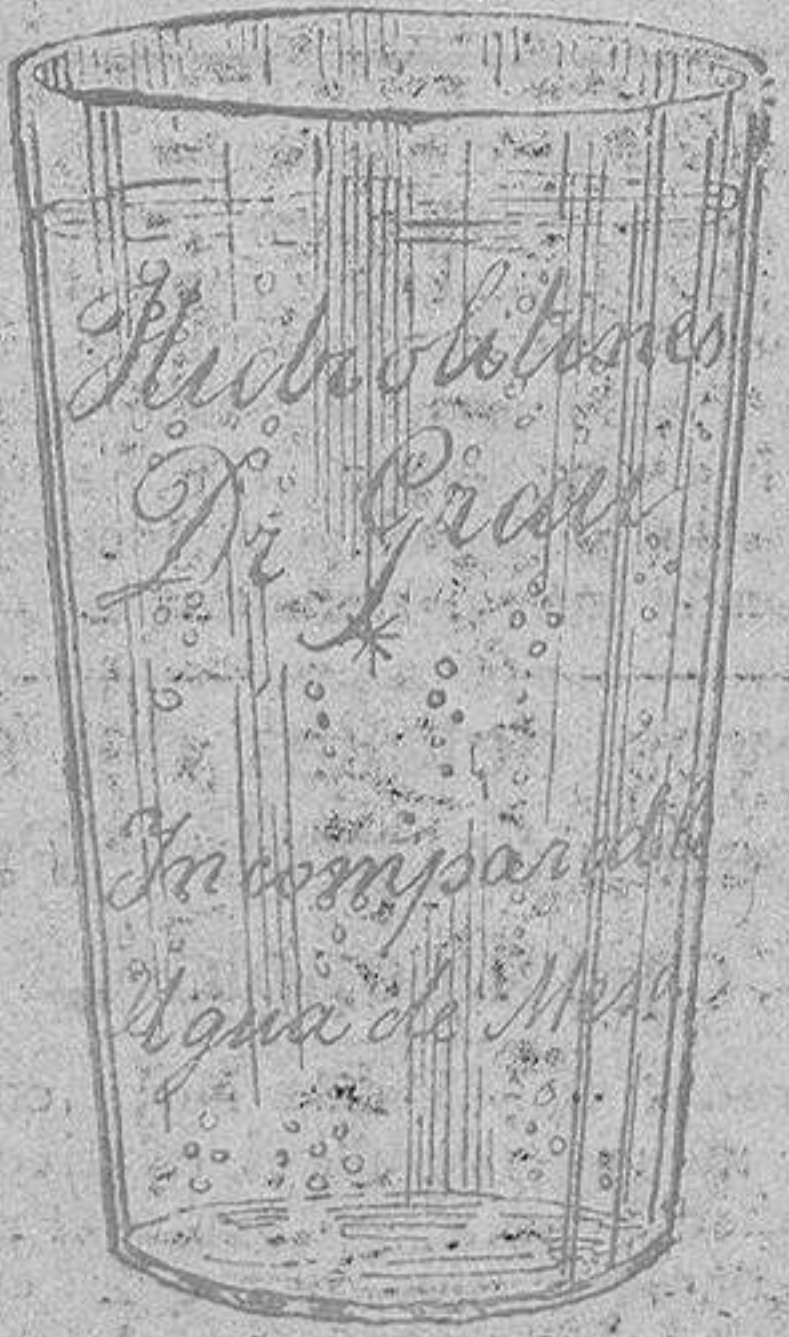 Hidrolitines
Dr Grau
Incomparable
Agua de Mesa